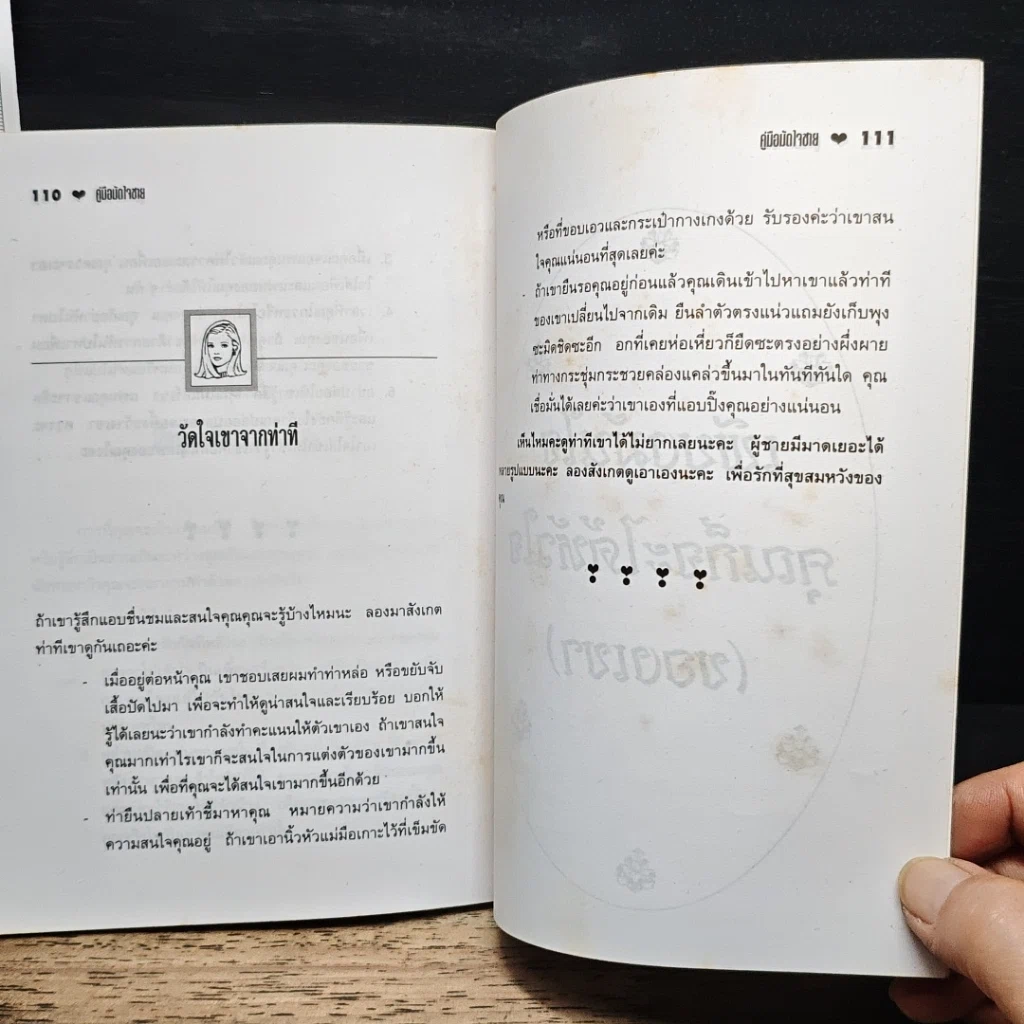 110 ❤ คู่มือมัดใจชาย
วัดใจเขาจากท่าที
ถ้าเขารู้สึกแอบชื่นชมและสนใจคุณคุณจะรู้บ้างไหมนะ ลองมาสังเกต
ท่าทีเขาดูกันเถอะค่ะ
- เมื่ออยู่ต่อหน้าคุณ เขาชอบเสยผมทำท่าหล่อ หรือขยับจับ
เสื้อปัดไปมา เพื่อจะทำให้ดูน่าสนใจและเรียบร้อย บอกให้
รู้ได้เลยนะว่าเขากำลังทำคะแนนให้ตัวเขาเอง ถ้าเขาสนใจ
คุณมากเท่าไรเขาก็จะสนใจในการแต่งตัวของเขามากขึ้น
เท่านั้น เพื่อที่คุณจะได้สนใจเขามากขึ้นอีกด้วย
- ท่ายืนปลายเท้าชี้มาหาคุณ หมายความว่าเขากำลังให้
ความสนใจคุณอยู่ ถ้าเขาเอานิ้วหัวแม่มือเกาะไว้ที่เข็มขัด
คู่มือมัดใจชาย ❤ 111
หรือที่ขอบเอวและกระเป๋ากางเกงด้วย รับรองค่ะว่าเขาสน
ใจคุณแน่นอนที่สุดเลยค่ะ
- ถ้าเขายืนรอคุณอยู่ก่อนแล้วคุณเดินเข้าไปหาเขาแล้วท่าที
ของเขาเปลี่ยนไปจากเดิม ยืนลำตัวตรงแน่วแถมยังเก็บพุง
ซะมิดชิดซะอีก อกที่เคยห่อเหี่ยวก็ยืดซะตรงอย่างผึ่งผาย
ท่าทางกระชุ่มกระชวยคล่องแคล่วขึ้นมาในทันทีทันใด คุณ
เชื่อมั่นได้เลยค่ะว่าเขาเองที่แอบปิ๊งคุณอย่างแน่นอน
เห็นไหมคะดูท่าทีเขาได้ไม่ยากเลยนะคะ ผู้ชายมีมาดเยอะได้
หลายรูปแบบนะคะ ลองสังเกตดูเอาเองนะคะ เพื่อรักที่สุขสมหวังของ
คุณ